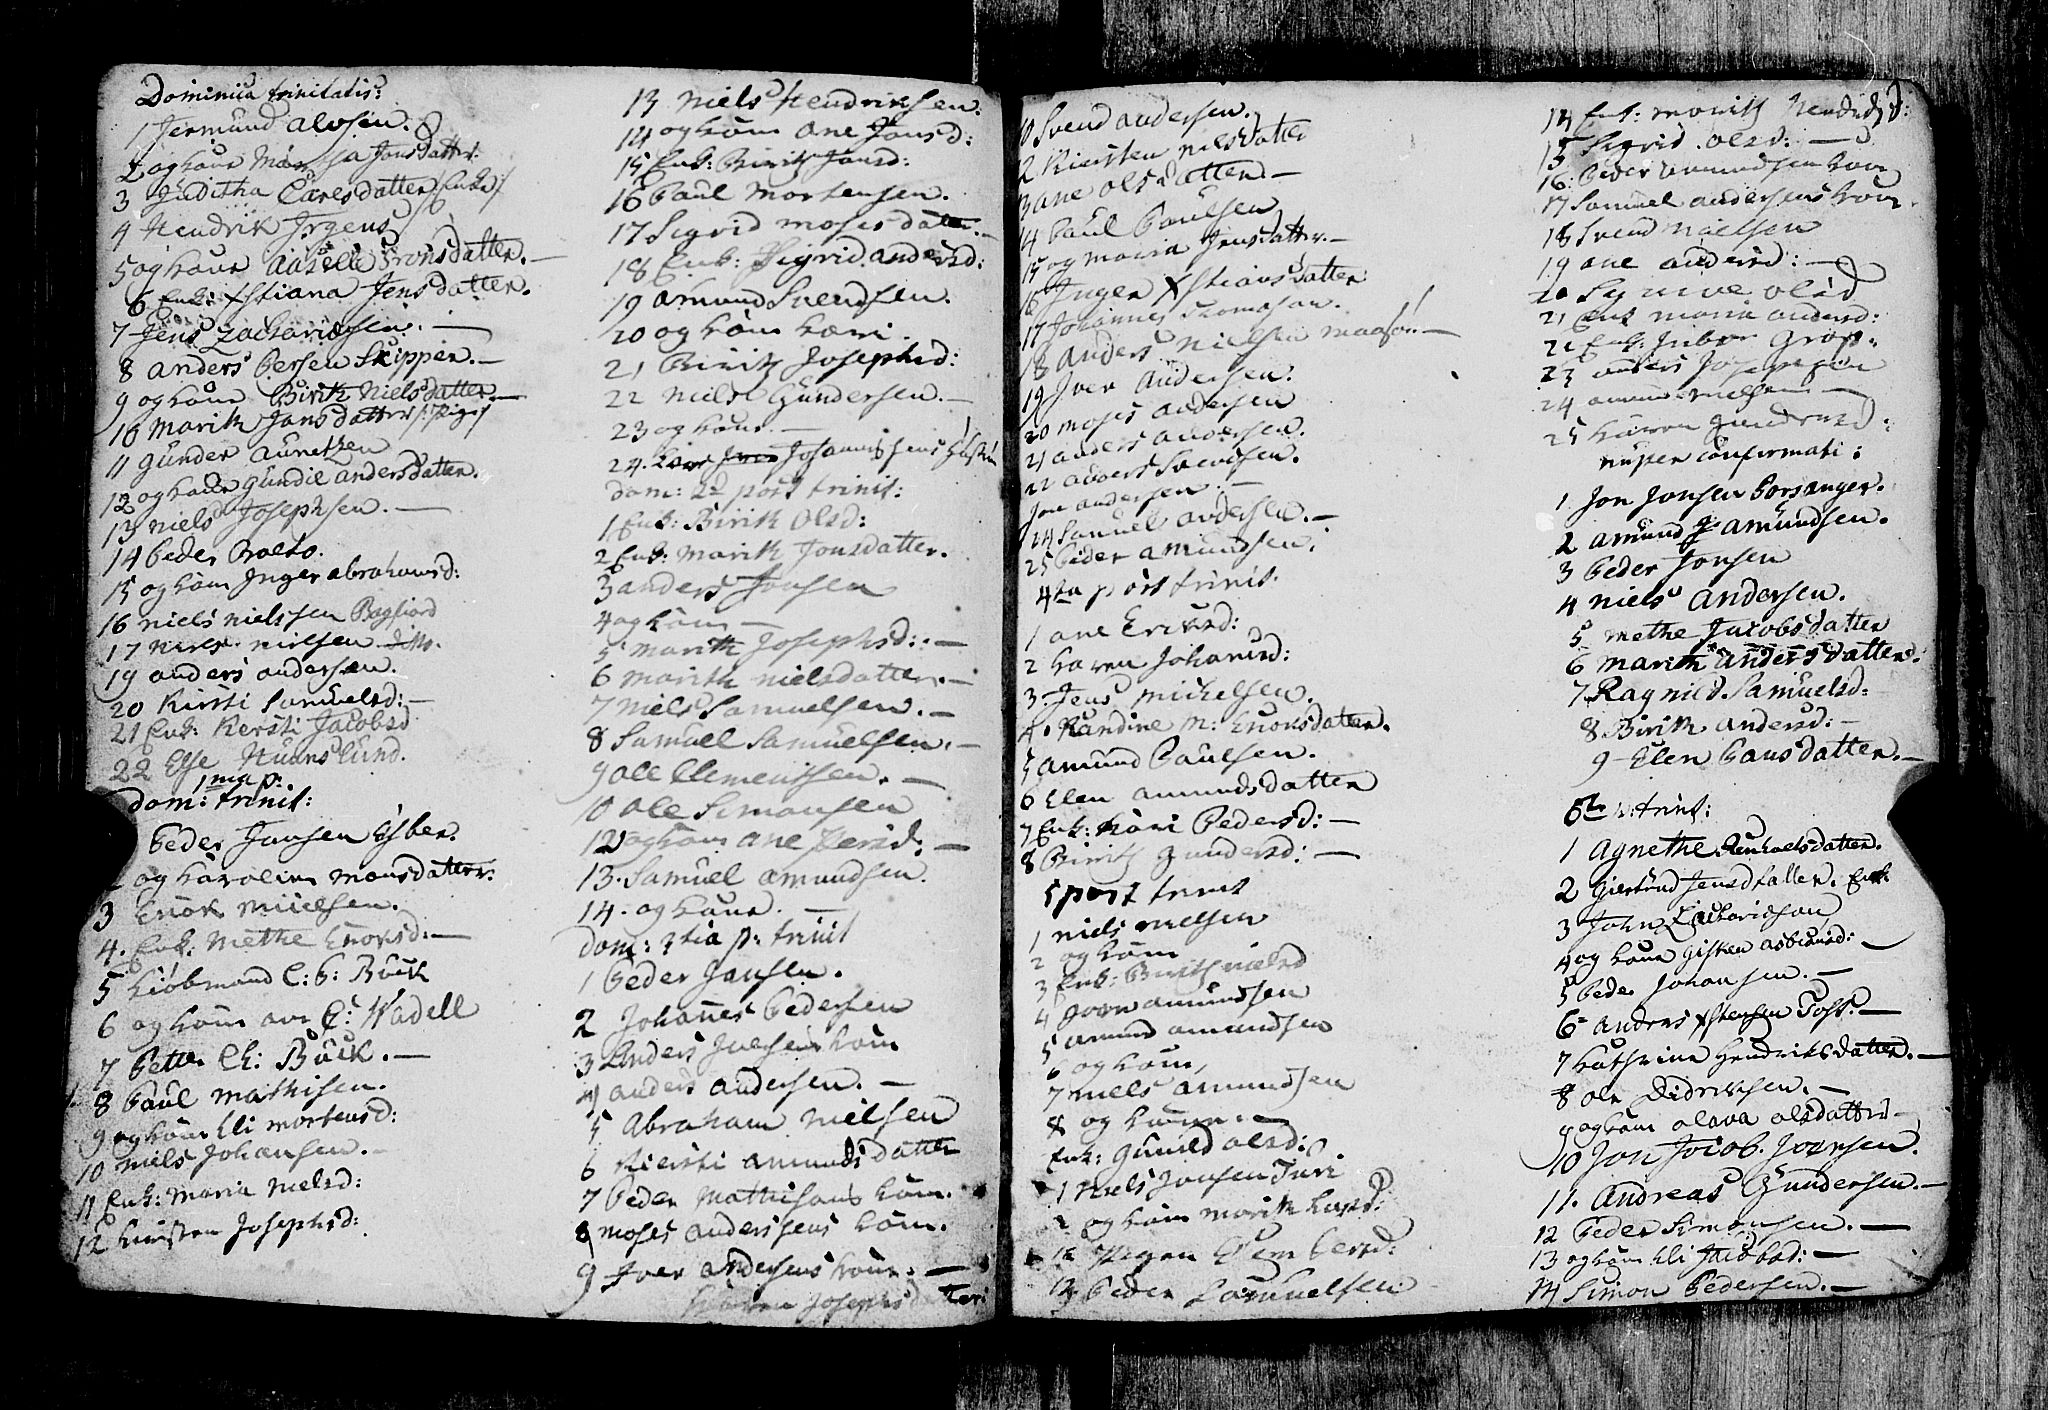 Dominica trinitatis:
1 Jermund alosen.
2 og hãne Jonsdatter:
3 Juditha Carlsdatter /:Enke:/
4 Hendrik Irgens
5 og hãne Aaselle Tronsdatter. —
6 Enk: Xstiana Jensdatter.
7 Jens Zachariasen. —
8 anders Persen Skipper. —
9 og hãne Birith Nielsdatter. —
10 Marith Jonsdatter /: Pige /
11 Gunder
12 og hãne Gundie andersdatter.
13 niels Josephsen. —
14 Peder Balto.
15 og hãne Inger abrahamsd:
16 niels nielssen
17 niels nielsen ditto.
19 anders andersen.
20 Kirsti Samuelsd: —
21 Enk: Kersti Jacobsd
22 Esse Lund.
1ma p:
dom: trinit:
Peder Jansen Esber.
og Karolin monsdatter.
3 Enok nielsen.
4. Enk: Methe Enoksd: —
5 Kiöbmand C: P: Buck
6 og hãne C: Wadell
7 Petter Ch: Buck. —
8 Paul Mathisen.
9 og hãne Eli mortensd:
10 niels Johansen. —
11 Enk: Maria nielsd:
12 Kirsten Josephsd:
13 niels Hendriksen:
14 og hãne ane Jonsd:
15 Enk: Birith Jonsd:
16 Paul Mortensen.
17 Sigrid mosesdatter. —
18 Enk: Sigrid andersd:
19 amund Svendsen.
20 og hãne Kari.
21 Birith Josephsd:
22 niels Gundersen. —
23 og hãne. —
24. Johannis
dom: 2d post trinit:
1 Enk: Birith Olsd:
2 Enk: Marith Jonsdatter.
3 anders Jonsen
4 og hãne —
5 Marith Josephsd: —
6 Marith nielsdatter. —
7 Niels Samuelsen. —
8 Samuel Samuelsen. —
9 ole Clementsen. —
10 ole Simonsen
12 og hãne ane —
13. Samuel amundsen.
14. og hãne. —
dom: 3tia p: trinit
1 Peder Jansen.
2 Johañes Pedersen
3 Anders Iversens kone
4 anders andersen. —
5 Abraham nielsen
6 Kiersti amundsdatter
7 Peder Mathisens kone.
8 moses anderssens kone.
9 Iver andersens kone. —
Karen Josephsdatter
10 Svend andersen.
12 Kiersten nielsdatter
13 ane olsdatter —
14 Paul Paulsen
15 og maria Jensdatter. —
16 Inger Xstiansdatter
17 Johannes Thomesen.
18 anders Nielsen —
19 Iver andersen.
20 moses andersen
21 anders andersen.
22 anders Svendsen.
Jon andersen. —
24 Samuel andersen. —
25 Peder amundsen.
4ta post trinit.
1 ane Ericksd:
2 Karen Johansd:
3. Jens Michelsen.
4. Randine M: Enoksdatter.
5 amund Paulsen.
6 Elen amundsdatter
7 Enk: Kari Pedersd: —
8 Birith Gundersd: —
5 post trinit
1 niels nielsen
2 og hãne
3 Enk: Birith nielsd
4 amundsen
5 amund amundsen
6 og hãne,
7 niels amundsen
8 og hãne. —
Enk: Gunild olsd:
1 Niels Jonsen Juri
2 og hãne Marith
12
13 Peder Samuelsen
14 Enk: Marith Hendriksd:
15 Sigrid olsd: —
16: Peder amundsens kone
17 Samuel andersens kone.
18 Svend nielsen
19 ane andersd: —
20 olsd
21 Enk maria andersd:
22 Enk:
23 anders
24 nielsen —
25 Karen Gundersd:
nuper confirmati:
1 Jon Jonsen Porsanger.
2 amund amundsen.
3 Peder Jonsen
4 niels andersen.
5 methe Jacobsdatter
6 Marith andersdatter.
7 Ragnild Samuelsd:
8 Birith andersd: —
9 Elen Paulsdatter. —
6te p: trinit:
1 Agnethe
2 Giertrud Jensdatter. Enk:
3 John Zachariasen
4 og hãne Gisken asbiørnsd: —
5 Peder Johansen. —
6 anders Xstensen Toss: —
7 Kathrina Hendriksdatter. —
8 ole Didriksen. —
9 og hãne olava olsdatter —
10 Jon Jacob
11. Andreas Gundersen. —
12 Peder Simonsen. —
13 og hãne Eli Jacobsd: —
14 Simon Pedersen. —